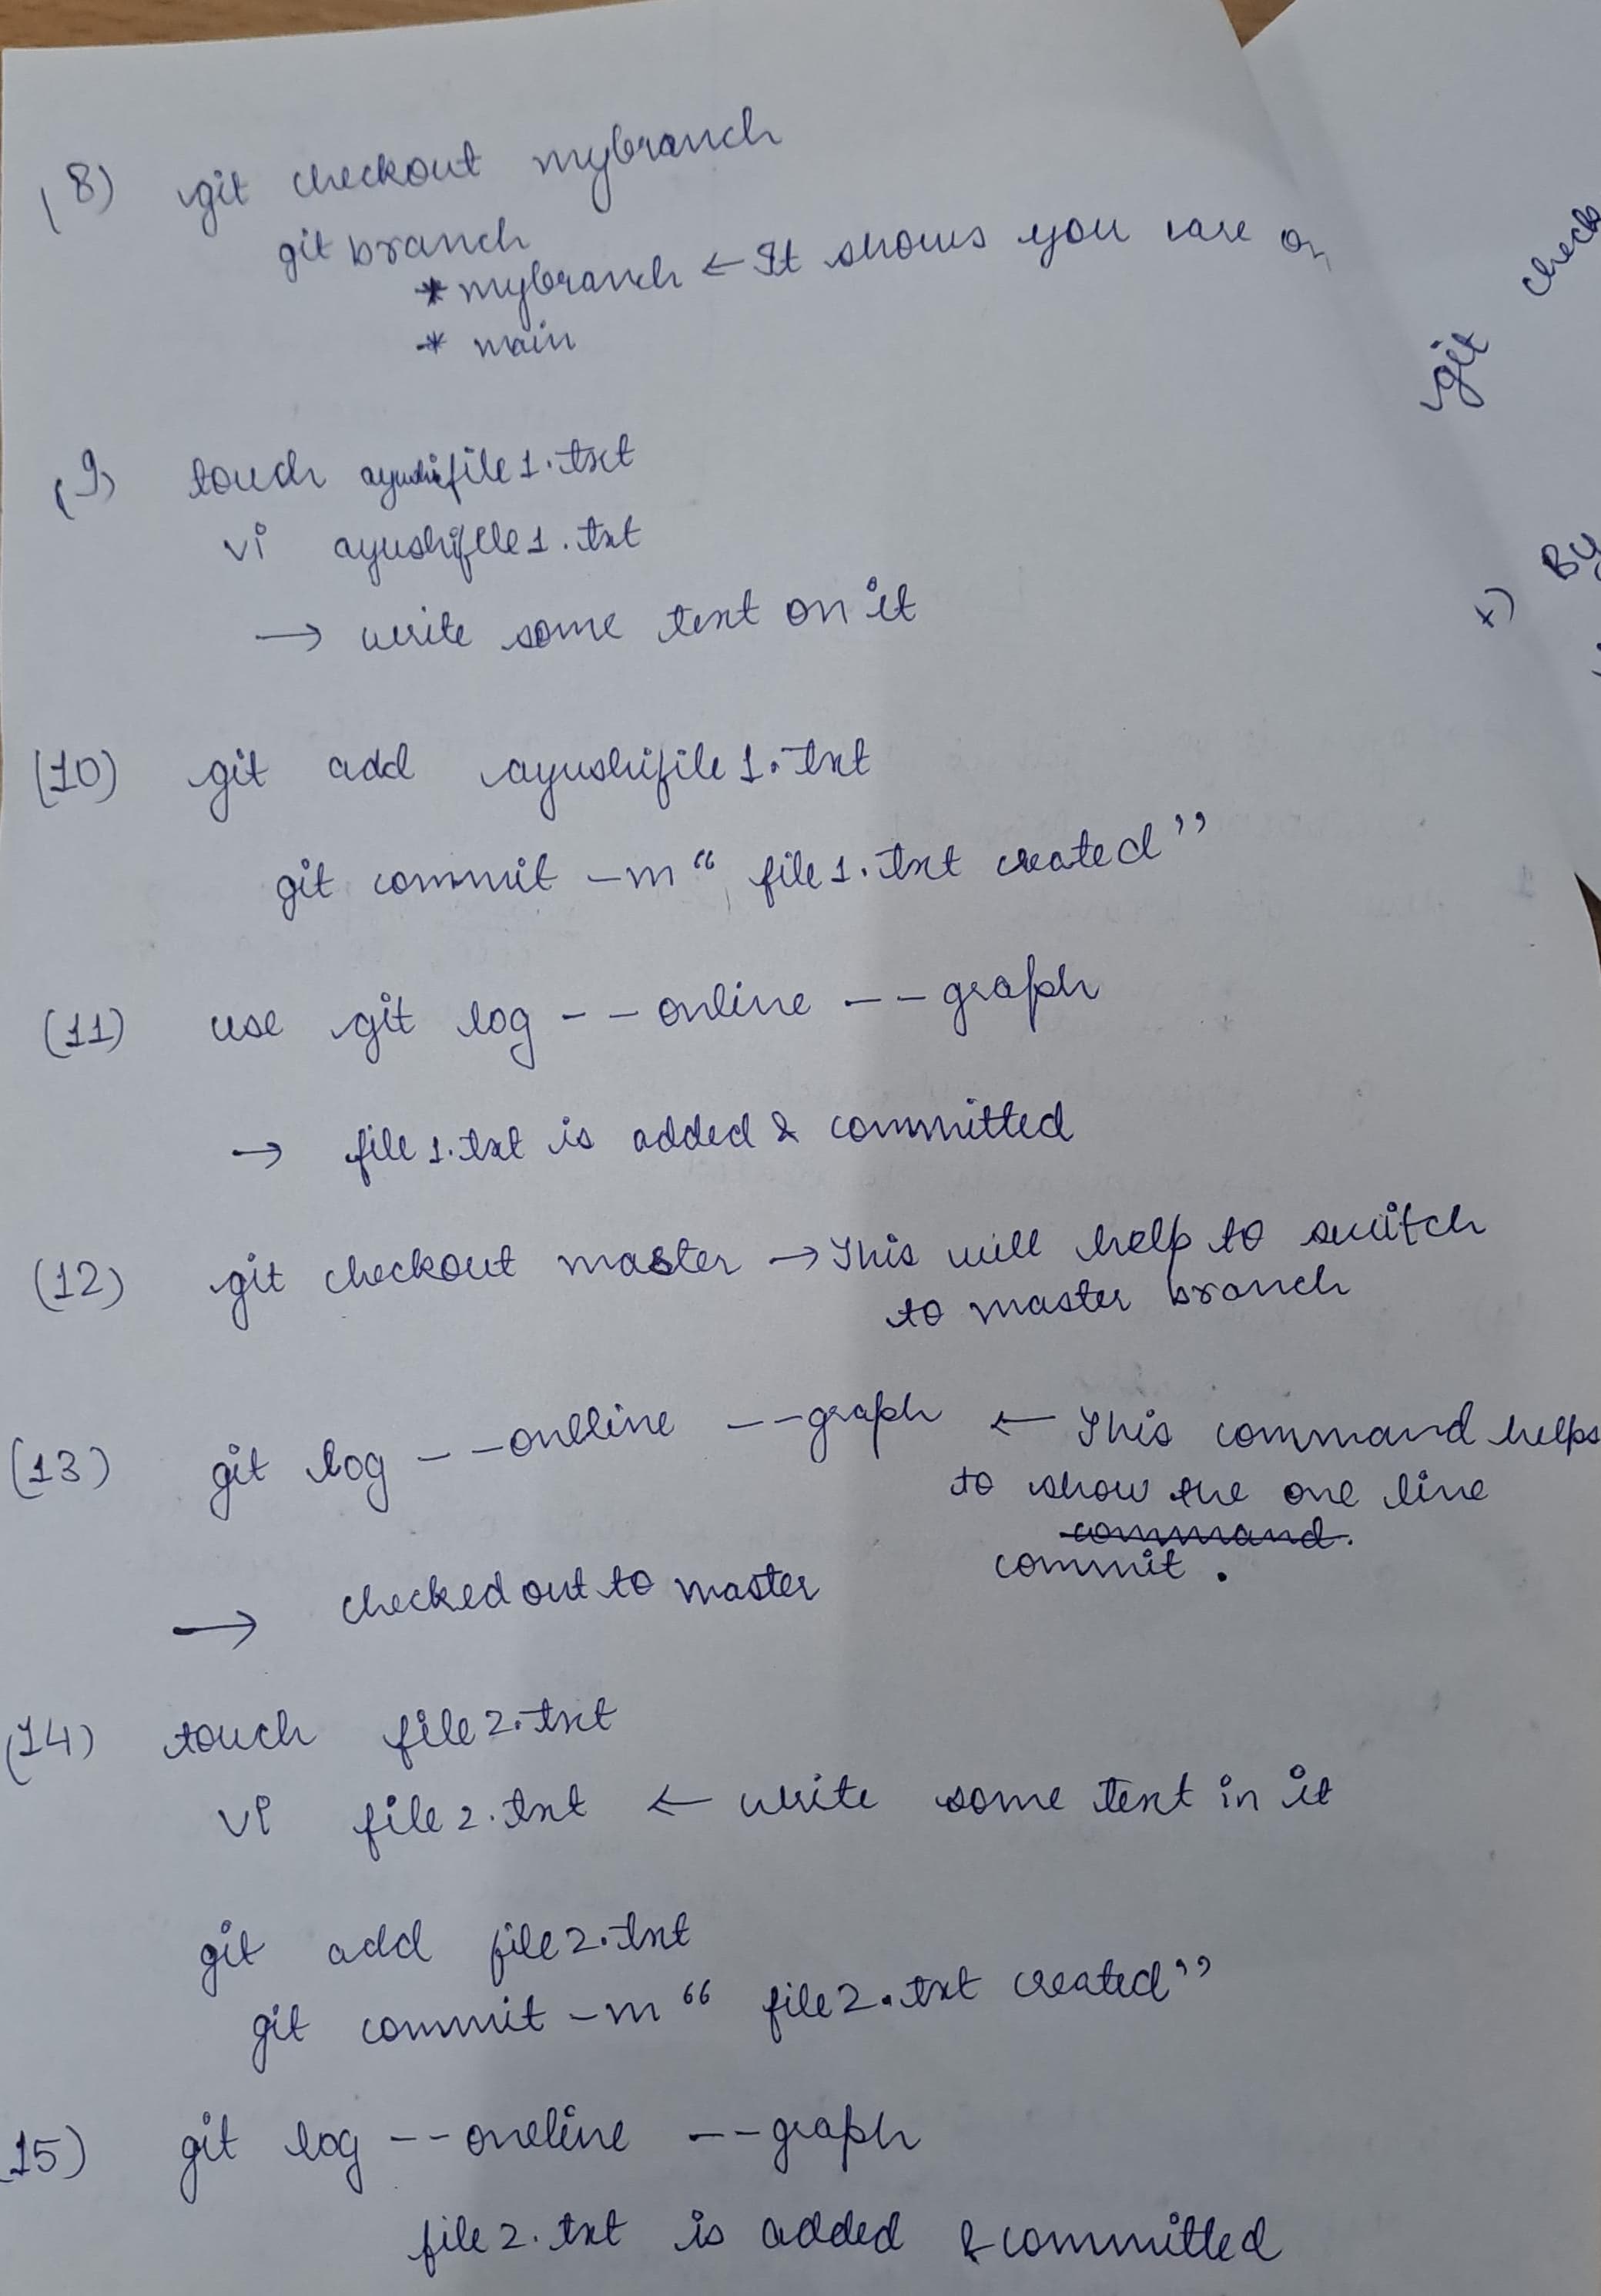 (8) git checkout mybranch
git branch
* mybranch ← It shows you are on
* main
(9) touch ayushifile1.txt
vi ayushifile1.txt
→ write some text on it
(10) git add ayushifile1.txt
git commit -m " file1.txt created"
(11) use git log --online --graph
→ file1.txt is added & committed
(12) git checkout master → This will help to switch
to master branch
(13) git log --onlline --graph ← This command helps
to show the one line
command.
commit.
→ checked out to master
(14) touch file2.txt
vi file2.txt ← write some text in it
git add file2.txt
git commit -m " file2.txt created"
15) git log --oneline --graph
file2.txt is added & committed
git check
*) By